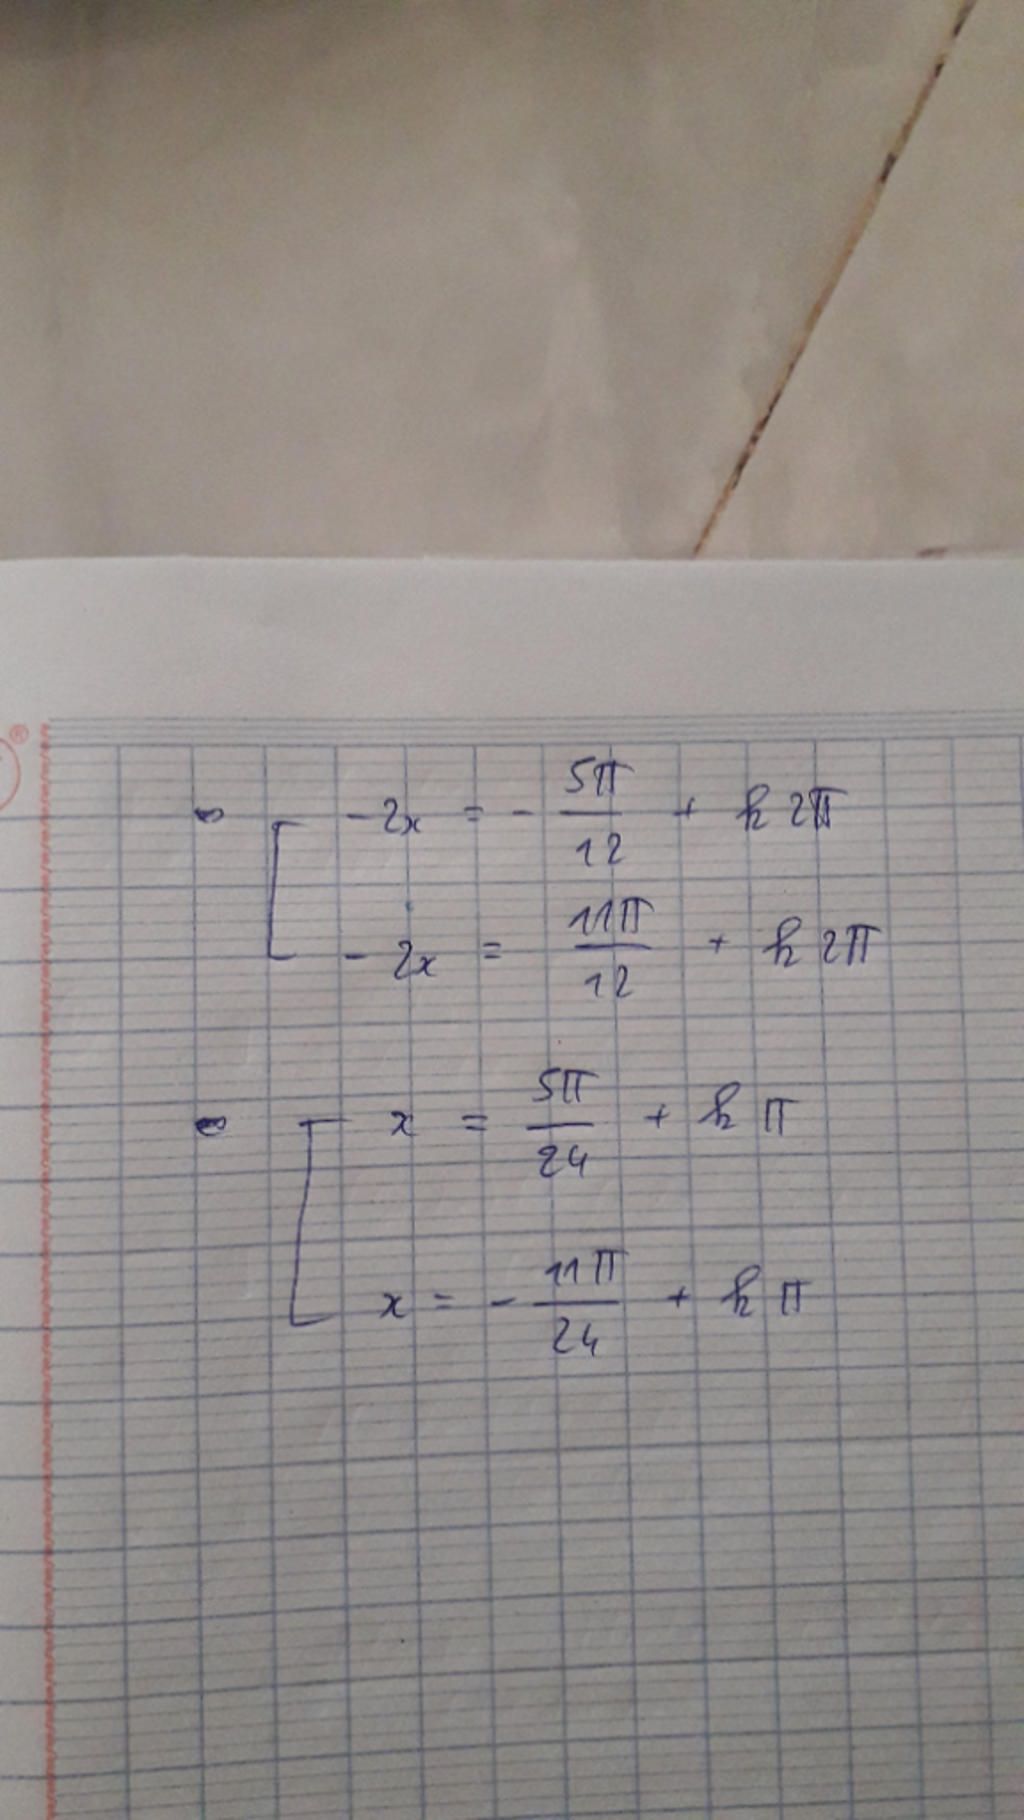 ⇔ [ -2x = - 5π/12 + k 2π
-2x = 11π/12 + k 2π
⇔ [ x = 5π/24 + k π
x = - 11π/24 + k π
®